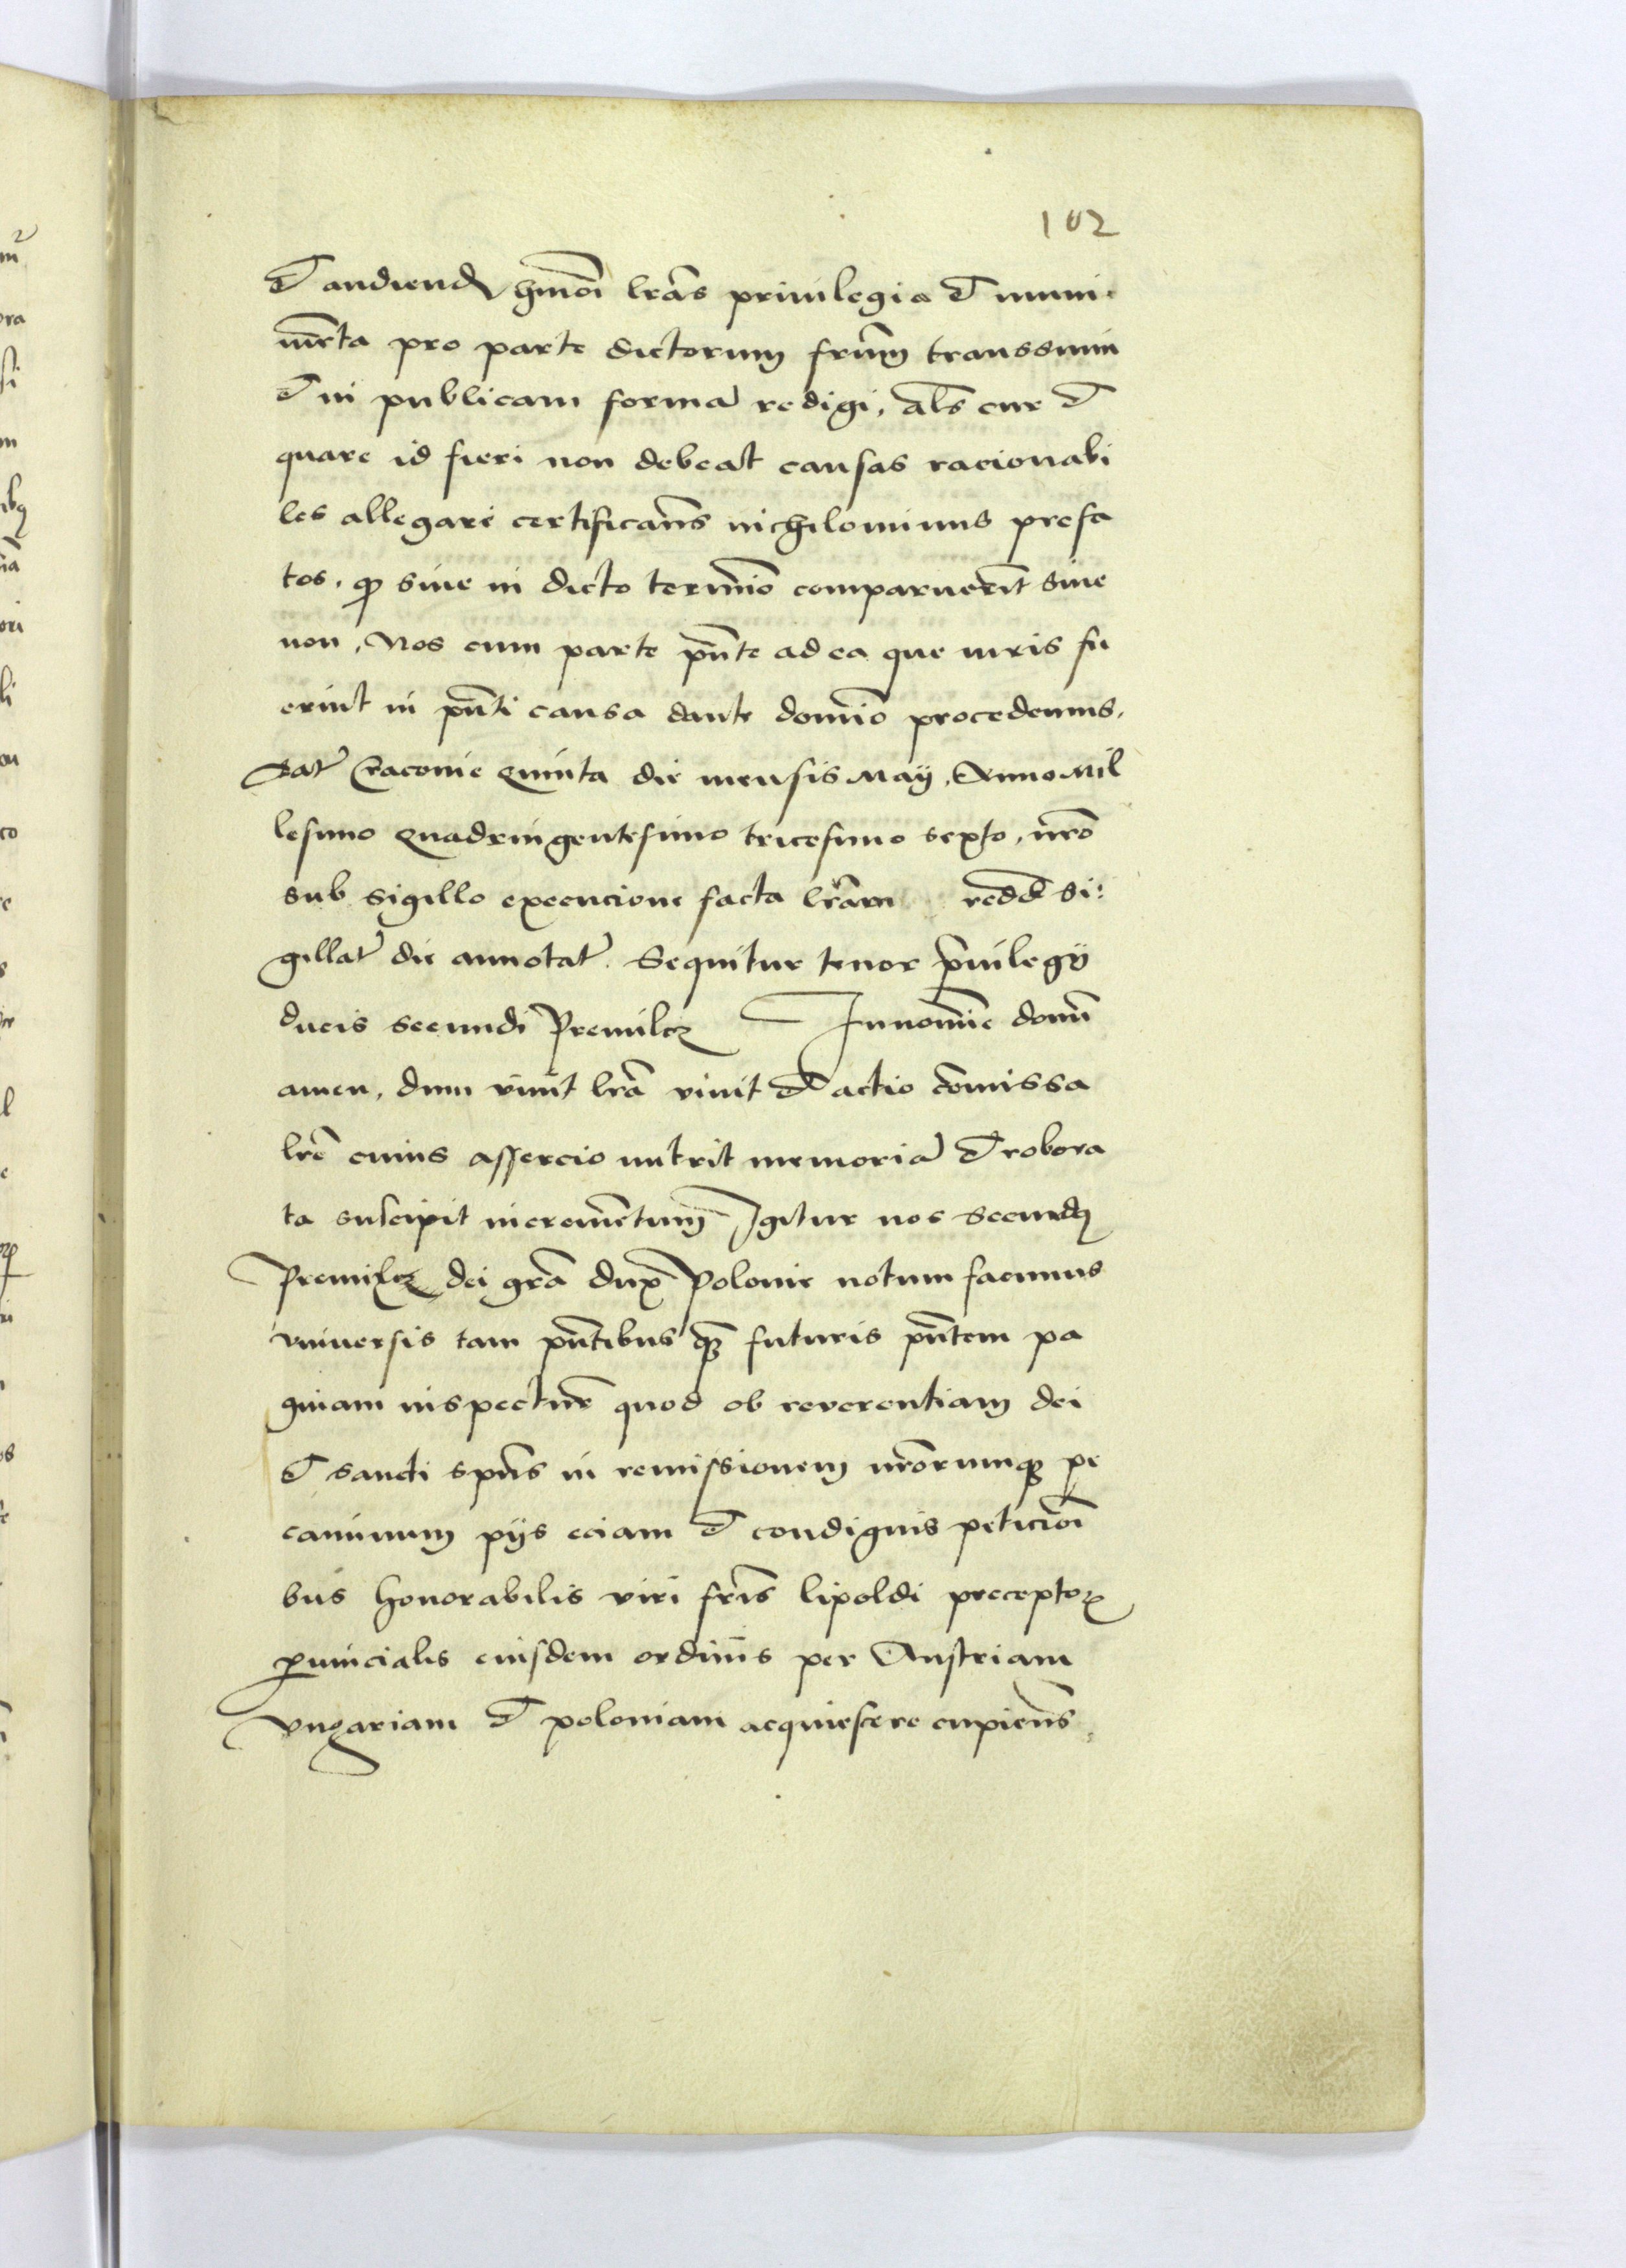 102
et audiend hmoi lras priuilegia et muni
menta pro parte dictorum frum transsumi
et in publicam forma redigi, als cur et
quare id fieri non debeat causas racionabi
les allegare certificans nichilominus prefa
tos, qp siue in dicto termio comparuerit siue
non, Nos cum parte pnte ad ea que iuris fu
erint in pnti causa dante domio procedemus.
Dat Cracouie Quinta die mensis May, Anno Mil
lesimo Quadringentesimo tricesimo sexto, nro
sub sigillo execucione facta lraru redd si:
gillat die annotat. Sequitur tenor priuilegy
ducis secundi Premislz In nomie domi
amen, dum viuit lra viuit et actio comissa
lre cuius assercio nutrit memoria et robora
ta suscipit incrementum Igitur nos Secundus
Premislz dei gra dux Polonie notum facimus
vniuersis tam pntibus qz futuris pntem pa
ginam inspectur quod ob reverentiam dei
et sancti spus in remissionem nrorumqz pe
caminum pijs eciam et condignis peticioi
bus honorabilis viri fris lipoldi preceptor
puincialis eiusdem ordinis per Austriam
Vngariam et poloniam acquiescere cupiens